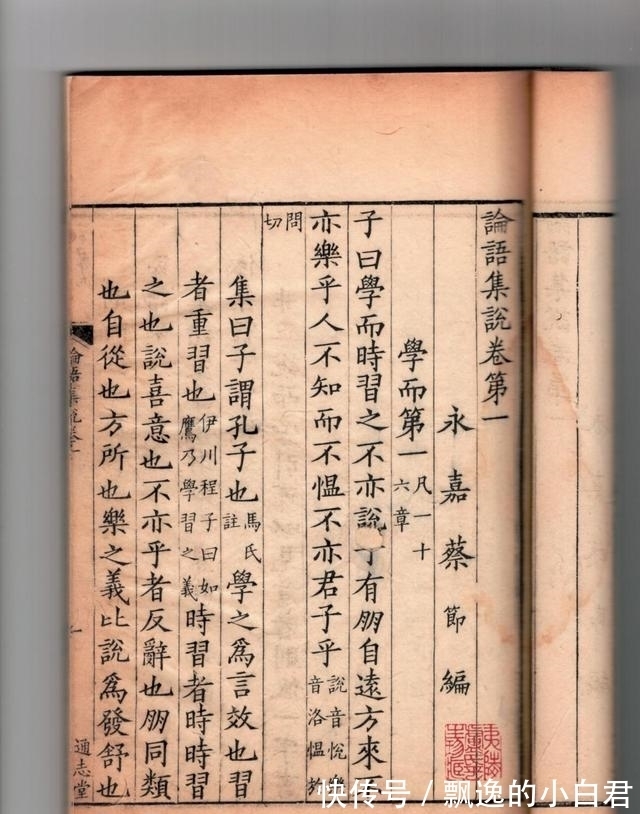 論語集說卷第一
永嘉蔡節編
學而第一凡一十六章
子曰學而時習之不亦說乎有朋自遠方來不
亦樂乎人不知而不慍不亦君子乎說音悅樂音洛慍
問切
集曰子謂孔子也馬氏註學之爲言效也習
者重習也伊川程子曰如鷹乃學習之義時習者時時習
之也說喜意也不亦乎者反辭也朋同類
也自從也方所也樂之義比說爲發舒也
論語集說卷一
一
通志堂
快传号/飘逸的小白君